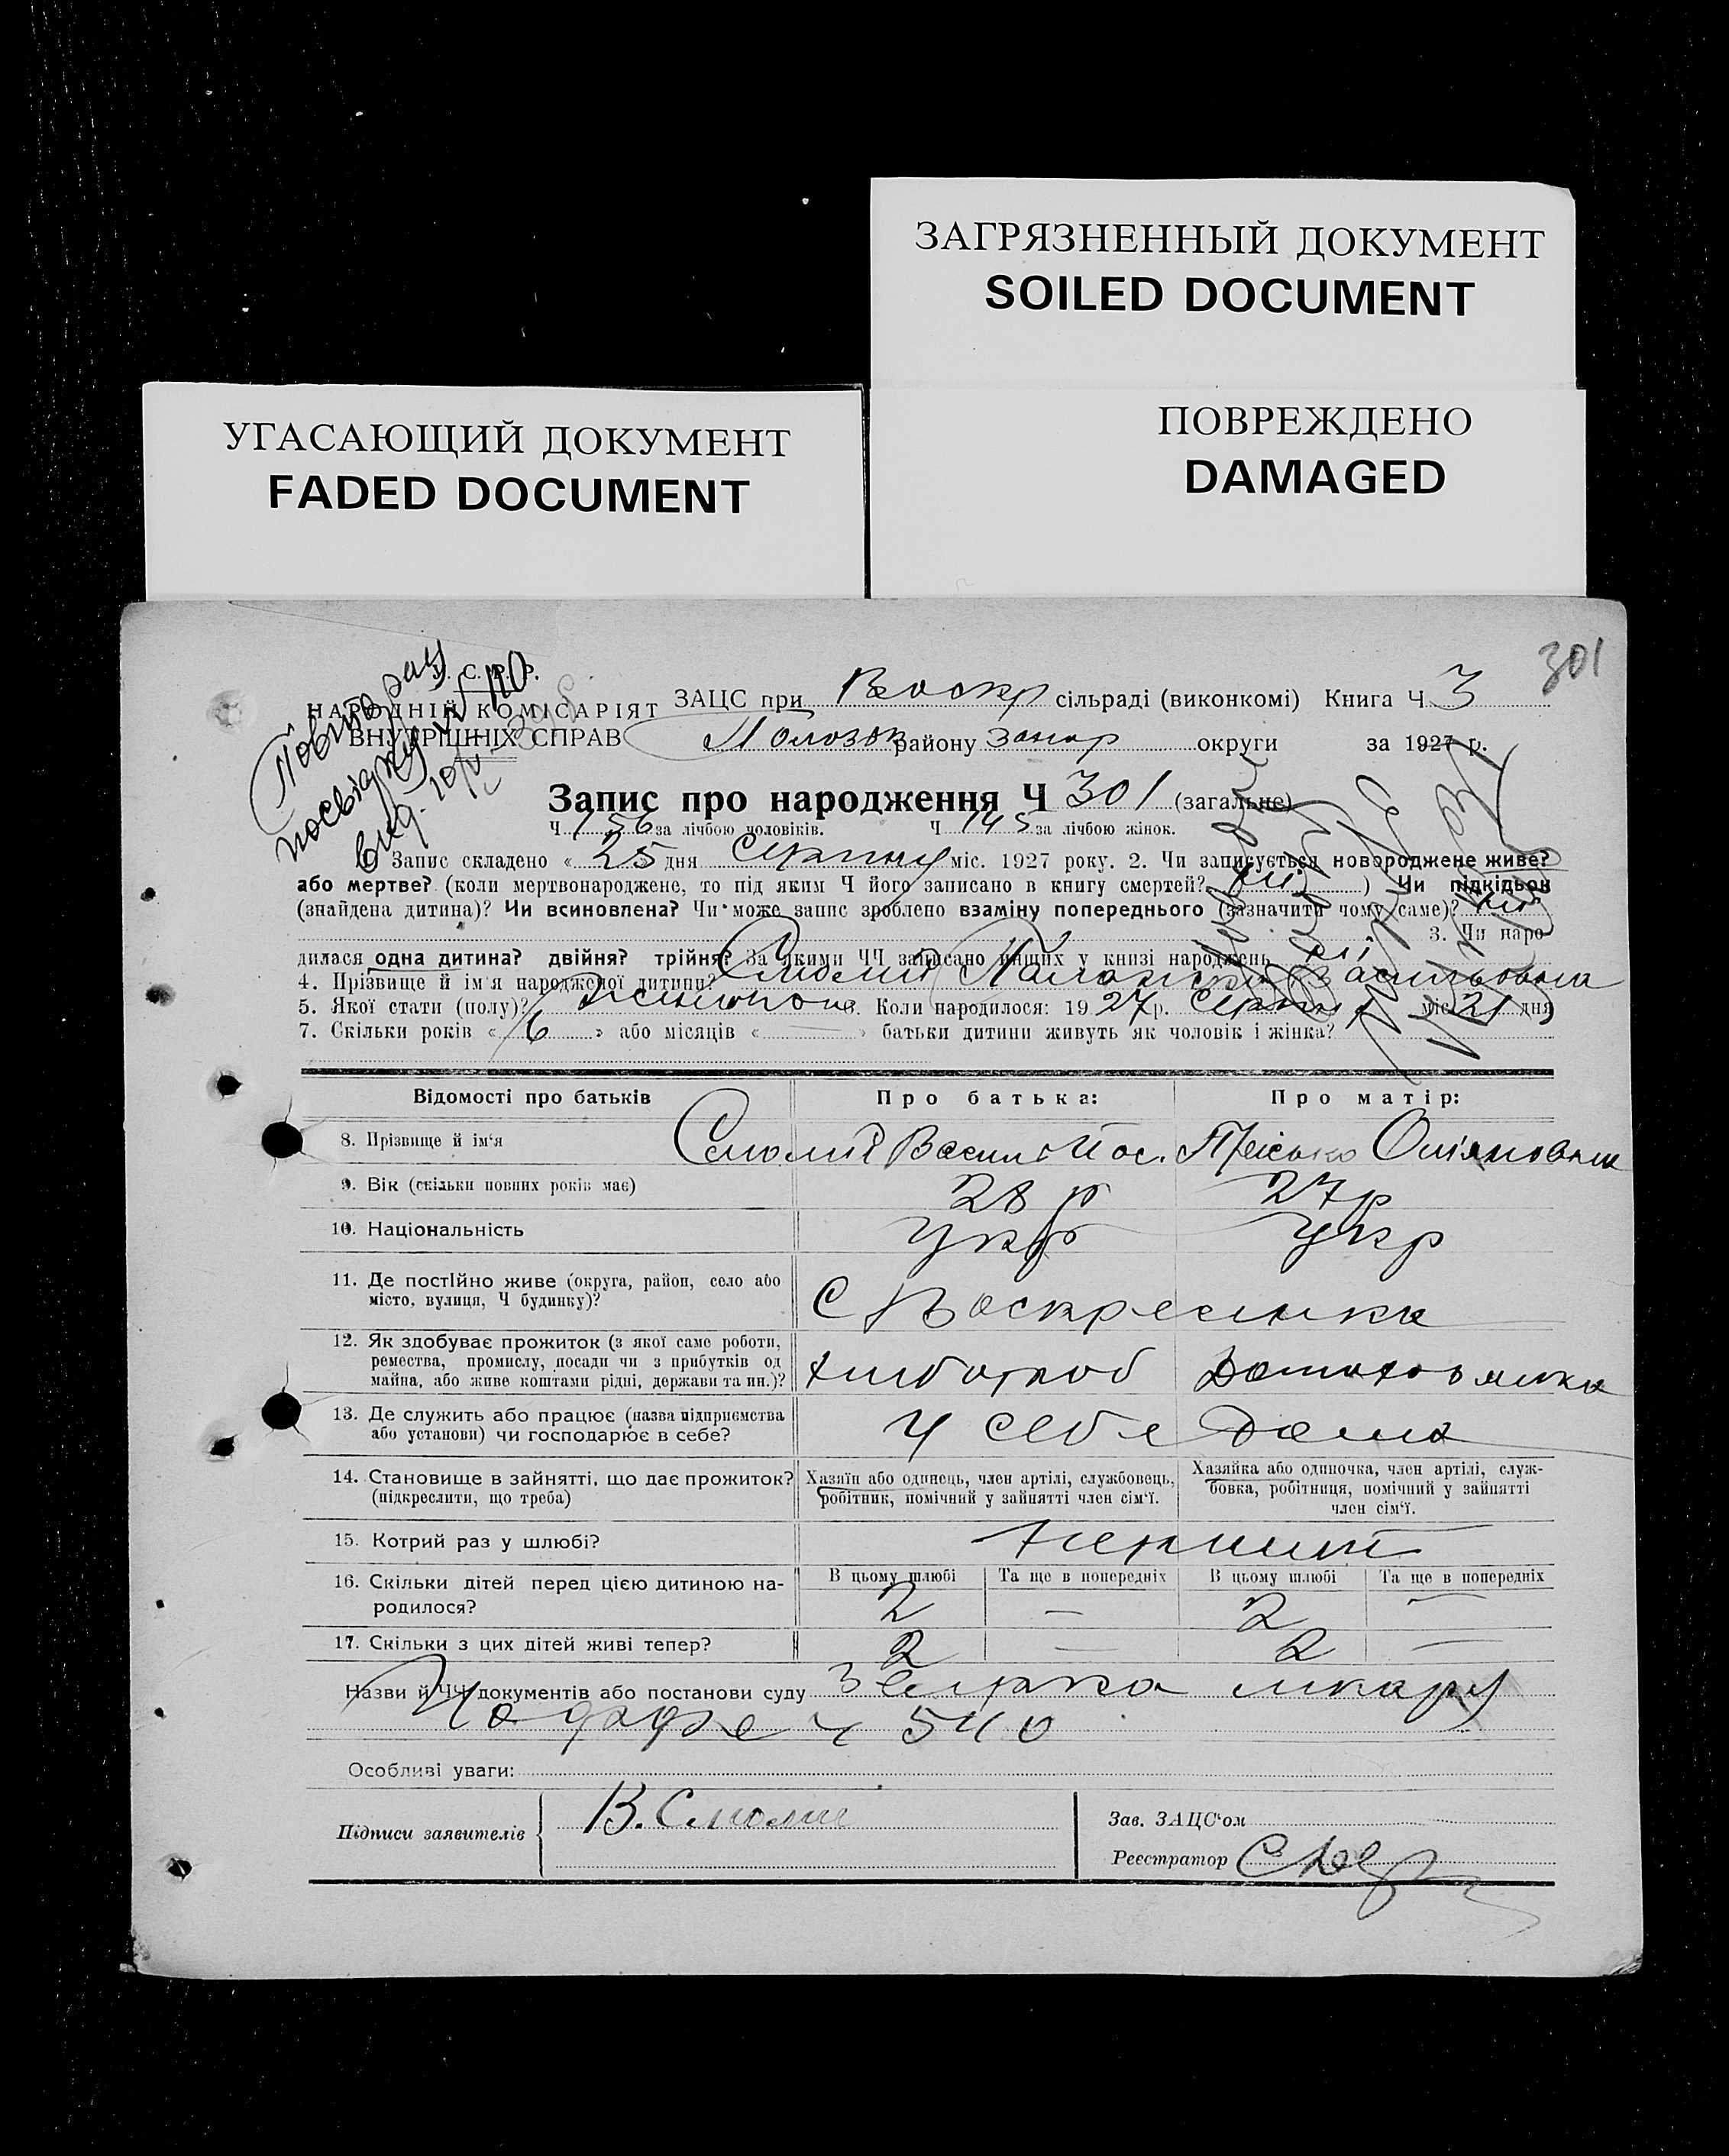 ЗАГРЯЗНЕННЫЙ ДОКУМЕНТ
SOILED DOCUMENT
УГАСАЮЩИЙ ДОКУМЕНТ
FADED DOCUMENT
ПОВРЕЖДЕНО
DAMAGED
301
НАРОДНІЙ КОМІСАРІЯТ
ВНУТРІШНІХ СПРАВ
ЗАЦС при Воскр сільраді (виконкомі) Книга Ч 3
району Запор округи за 1927 р.
Запис про народження Ч 301 (загальне)
Ч 156 за лічбою чоловіків. Ч 145 за лічбою жінок.
Запис складено « 25 дня Серпня міс. 1927 року. 2. Чи записується новороджене живе?
або мертве? (коли мертвонароджене, то під яким Ч його записано в книгу смертей? ні ) Чи підкідьок
(знайдена дитина)? Чи всиновлена? Чи може запис зроблено взаміну попереднього (зазначити чому саме)? ні
3. Чи наро-
дилася одна дитина? двійня? трійня? За якими ЧЧ записано инших у книзі народжень ні
4. Прізвище й ім'я народженої дитини? Васильовна
5. Якої стати (полу)? 6. Коли народилося: 1927 р. Серпня міс. 21 дня
7. Скільки років « 6 » або місяців « — » батьки дитини живуть як чоловік і жінка?
Відомості про батьків Про батька: Про матір:
8. Прізвище й ім'я
9. Вік (скільки повних років має) 28 р 27 р
10. Національність Укр Укр
11. Де постійно живе (округа, район, село або
місто, вулиця, Ч будинку)? С Воскресенка
12. Як здобуває прожиток (з якої саме роботи,
ремества, промислу, посади чи з прибутків од
майна, або живе коштами рідні, держави та ин.)? хлібороб Домохозяйка
13. Де служить або працює (назва підприємства
або установи) чи господарює в себе? У себе дома
14. Становище в зайнятті, що дає прожиток?
(підкреслити, що треба)
Хазяїн або одинець, член артілі, службовець,
робітник, помічний у зайнятті член сім'ї.
Хазяйка або одиночка, член артілі, служ-
бовка, робітниця, помічний у зайнятті
член сім'ї.
15. Котрий раз у шлюбі? первий
16. Скільки дітей перед цією дитиною на-
родилося?
В цьому шлюбі Та ще в попередніх В цьому шлюбі Та ще в попередніх
2 — 2 —
17. Скільки з цих дітей живі тепер? 2 — 2 —
Назви й ЧЧ документів або постанови суду лікару
540
Особливі уваги:
Підписи заявителів
Зав. ЗАЦС'ом
Реєстратор